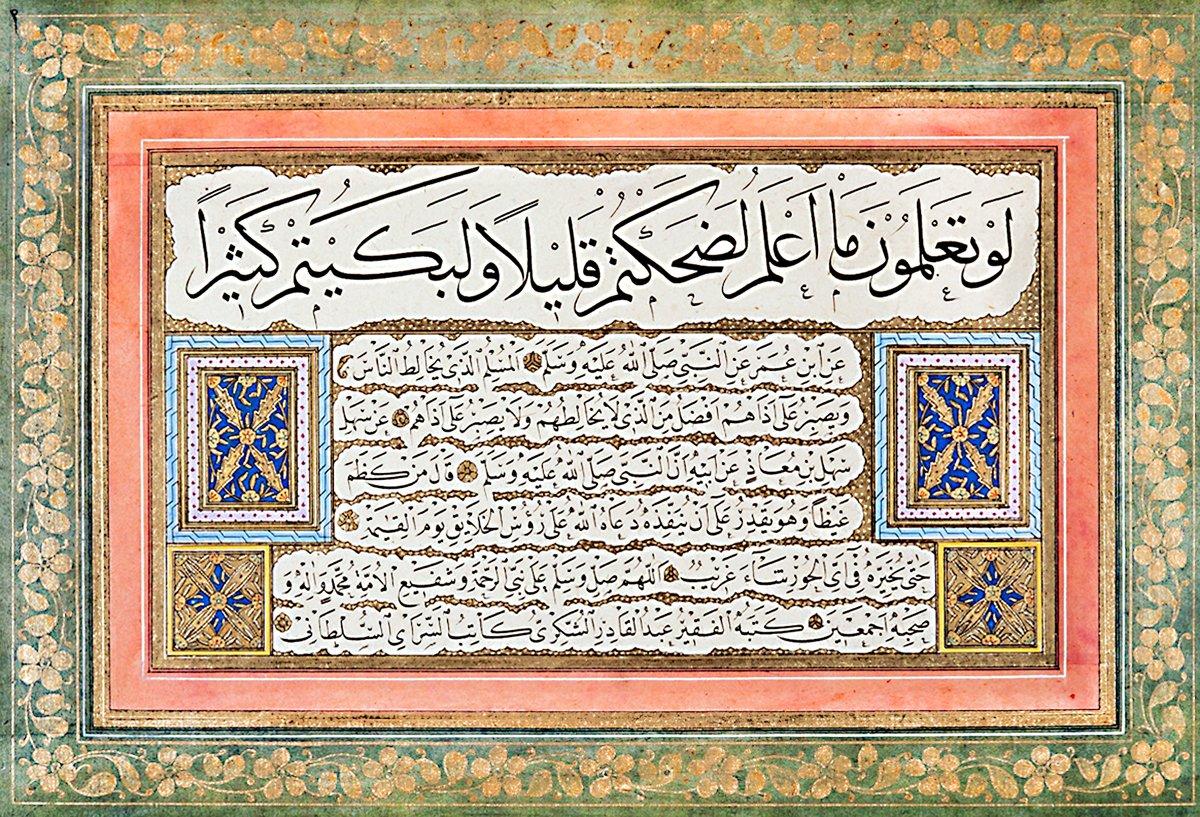 لَوْ تَعْلَمُوْنَ مَا اَعْلَمُ لَضَحِكْتُمْ قَلِيْلًا وَلَبَكَيْتُمْ كَثِيْرًا
عَنِ ابْنِ عُمَرَ عَنِ النَّبِيِّ صَلَّى اللهُ عَلَيْهِ وَسَلَّمَ الْمُسْلِمُ الَّذِي يُخَالِطُ النَّاسَ
وَيَصْبِرُ عَلَى اَذَاهُمْ اَفْضَلُ مِنَ الَّذِي لَا يُخَالِطُهُمْ وَلَا يَصْبِرُ عَلَى اَذَاهُمْ عَنْ سَهْلِ
سَهْلِ بْنِ مُعَاذٍ عَنْ اَبِيْهِ اَنَّ النَّبِيَّ صَلَّى اللهُ عَلَيْهِ وَسَلَّمَ قَالَ مَنْ كَظَمَ
غَيْظًا وَهُوَ يَقْدِرُ عَلَى اَنْ يُنَفِّذَهُ دَعَاهُ اللهُ عَلَى رُؤُسِ الْخَلَايِقِ يَوْمَ الْقِيٰمَةِ
حَتَّى يُخَيِّرَهُ فِي اَيِّ الْحُورِ شَاءَ اَللّٰهُمَّ صَلِّ وَسَلِّمْ عَلَى نَبِيِّ الرَّحْمَةِ وَشَفِيْعِ الْاُمَّةِ مُحَمَّدٍ وَاٰلِهِ وَ
صَحْبِهِ اَجْمَعِيْنَ كَتَبَهُ الْفَقِيْرُ عَبْدُ الْقَادِرِ الشُّكْرِيُّ كَاتِبُ السَّرَايِ السُّلْطَانِي